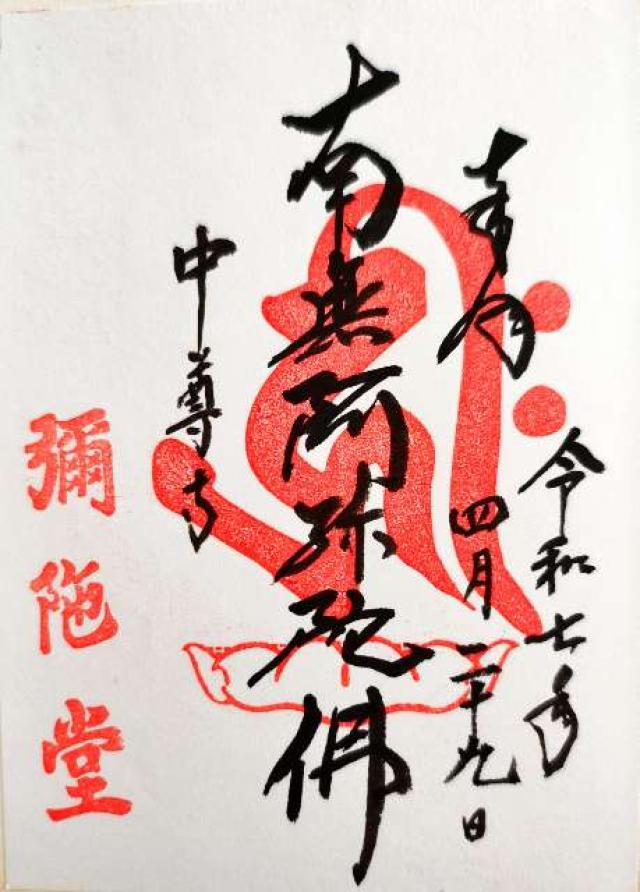 奉拝
令和七年
四月二十九日
南無阿弥陀佛
中尊寺
彌陀堂